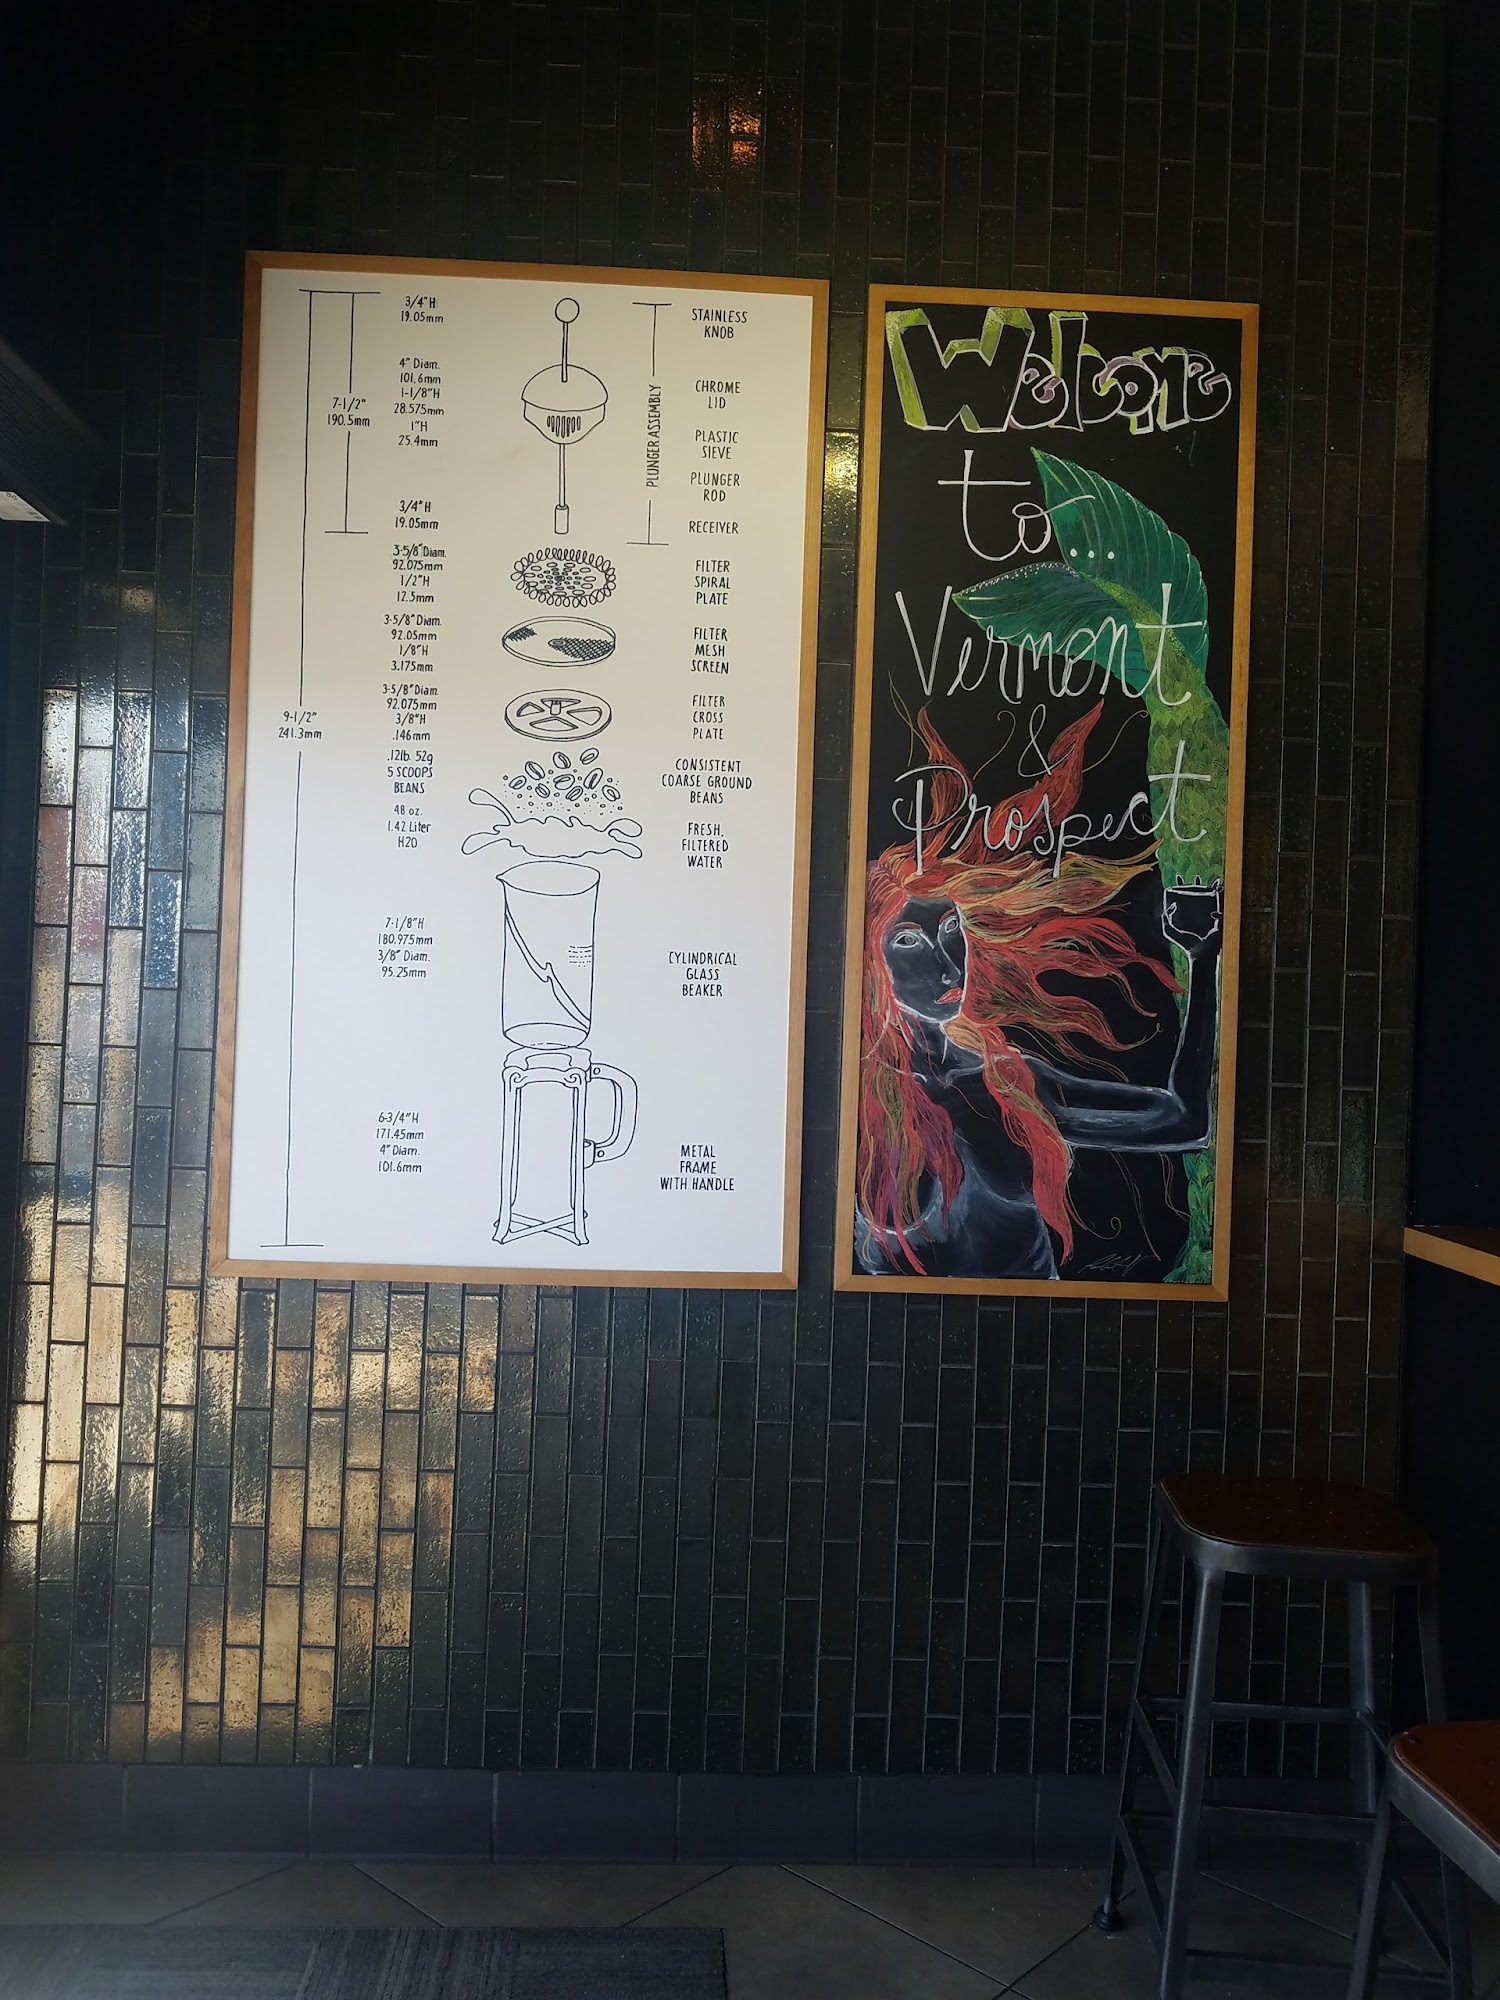 3/4"H
19.05mm
4" Diam.
101.6mm
1-1/8"H
28.575mm
1"H
25.4mm
7-1/2"
190.5mm
3/4"H
19.05mm
3-5/8"Diam.
92.075mm
1/2"H
12.5mm
3-5/8" Diam.
92.05mm
1/8"H
3.175mm
3-5/8"Diam.
92.075mm
3/8"H
.146mm
9-1/2"
241.3mm
.12lb. 52g
5 SCOOPS
BEANS
48 oz.
1.42 Liter
H2O
7-1/8"H
180.975mm
3/8" Diam.
95.25mm
6-3/4"H
171.45mm
4" Diam.
101.6mm
PLUNGER ASSEMBLY
STAINLESS
KNOB
CHROME
LID
PLASTIC
SIEVE
PLUNGER
ROD
RECEIVER
FILTER
SPIRAL
PLATE
FILTER
MESH
SCREEN
FILTER
CROSS
PLATE
CONSISTENT
COARSE GROUND
BEANS
FRESH,
FILTERED
WATER
CYLINDRICAL
GLASS
BEAKER
METAL
FRAME
WITH HANDLE
Welcome
to...
Vermont
&
Prospect